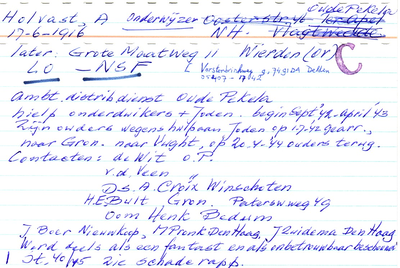 Holvast, A Onderwijzer Oosterstr 4b Oude Pekela
17-6-1916 N.H. Vlagtwedde
later: Grote Maatweg 11 Wierden (Ov) C
LO - NSF Vorstenbrinkweg 9, 7491DA Delden
Ambt. distrib dienst Oude Pekela
hielp onderduikers + Joden. begin Sept '42 - april '43
Zijn ouders wegens hulp aan Joden op 1.7.42 gearr.,
naar Gron. naar Vught, op 20.4.44 ouders terug.
Contacten: de Wit O.P.
v.d. Veen
Ds. A. Croïx Winschoten
H.E. Buit Gron. Paterswweg 49
Oom Henk Bedum
J Boer Nieuwkoop, M Pronk Den Haag, J Zuidema Den Haag
Werd deels als een fantast en als onbetrouwbaar beschouwd
! St. 40/45 zie schaderapp.